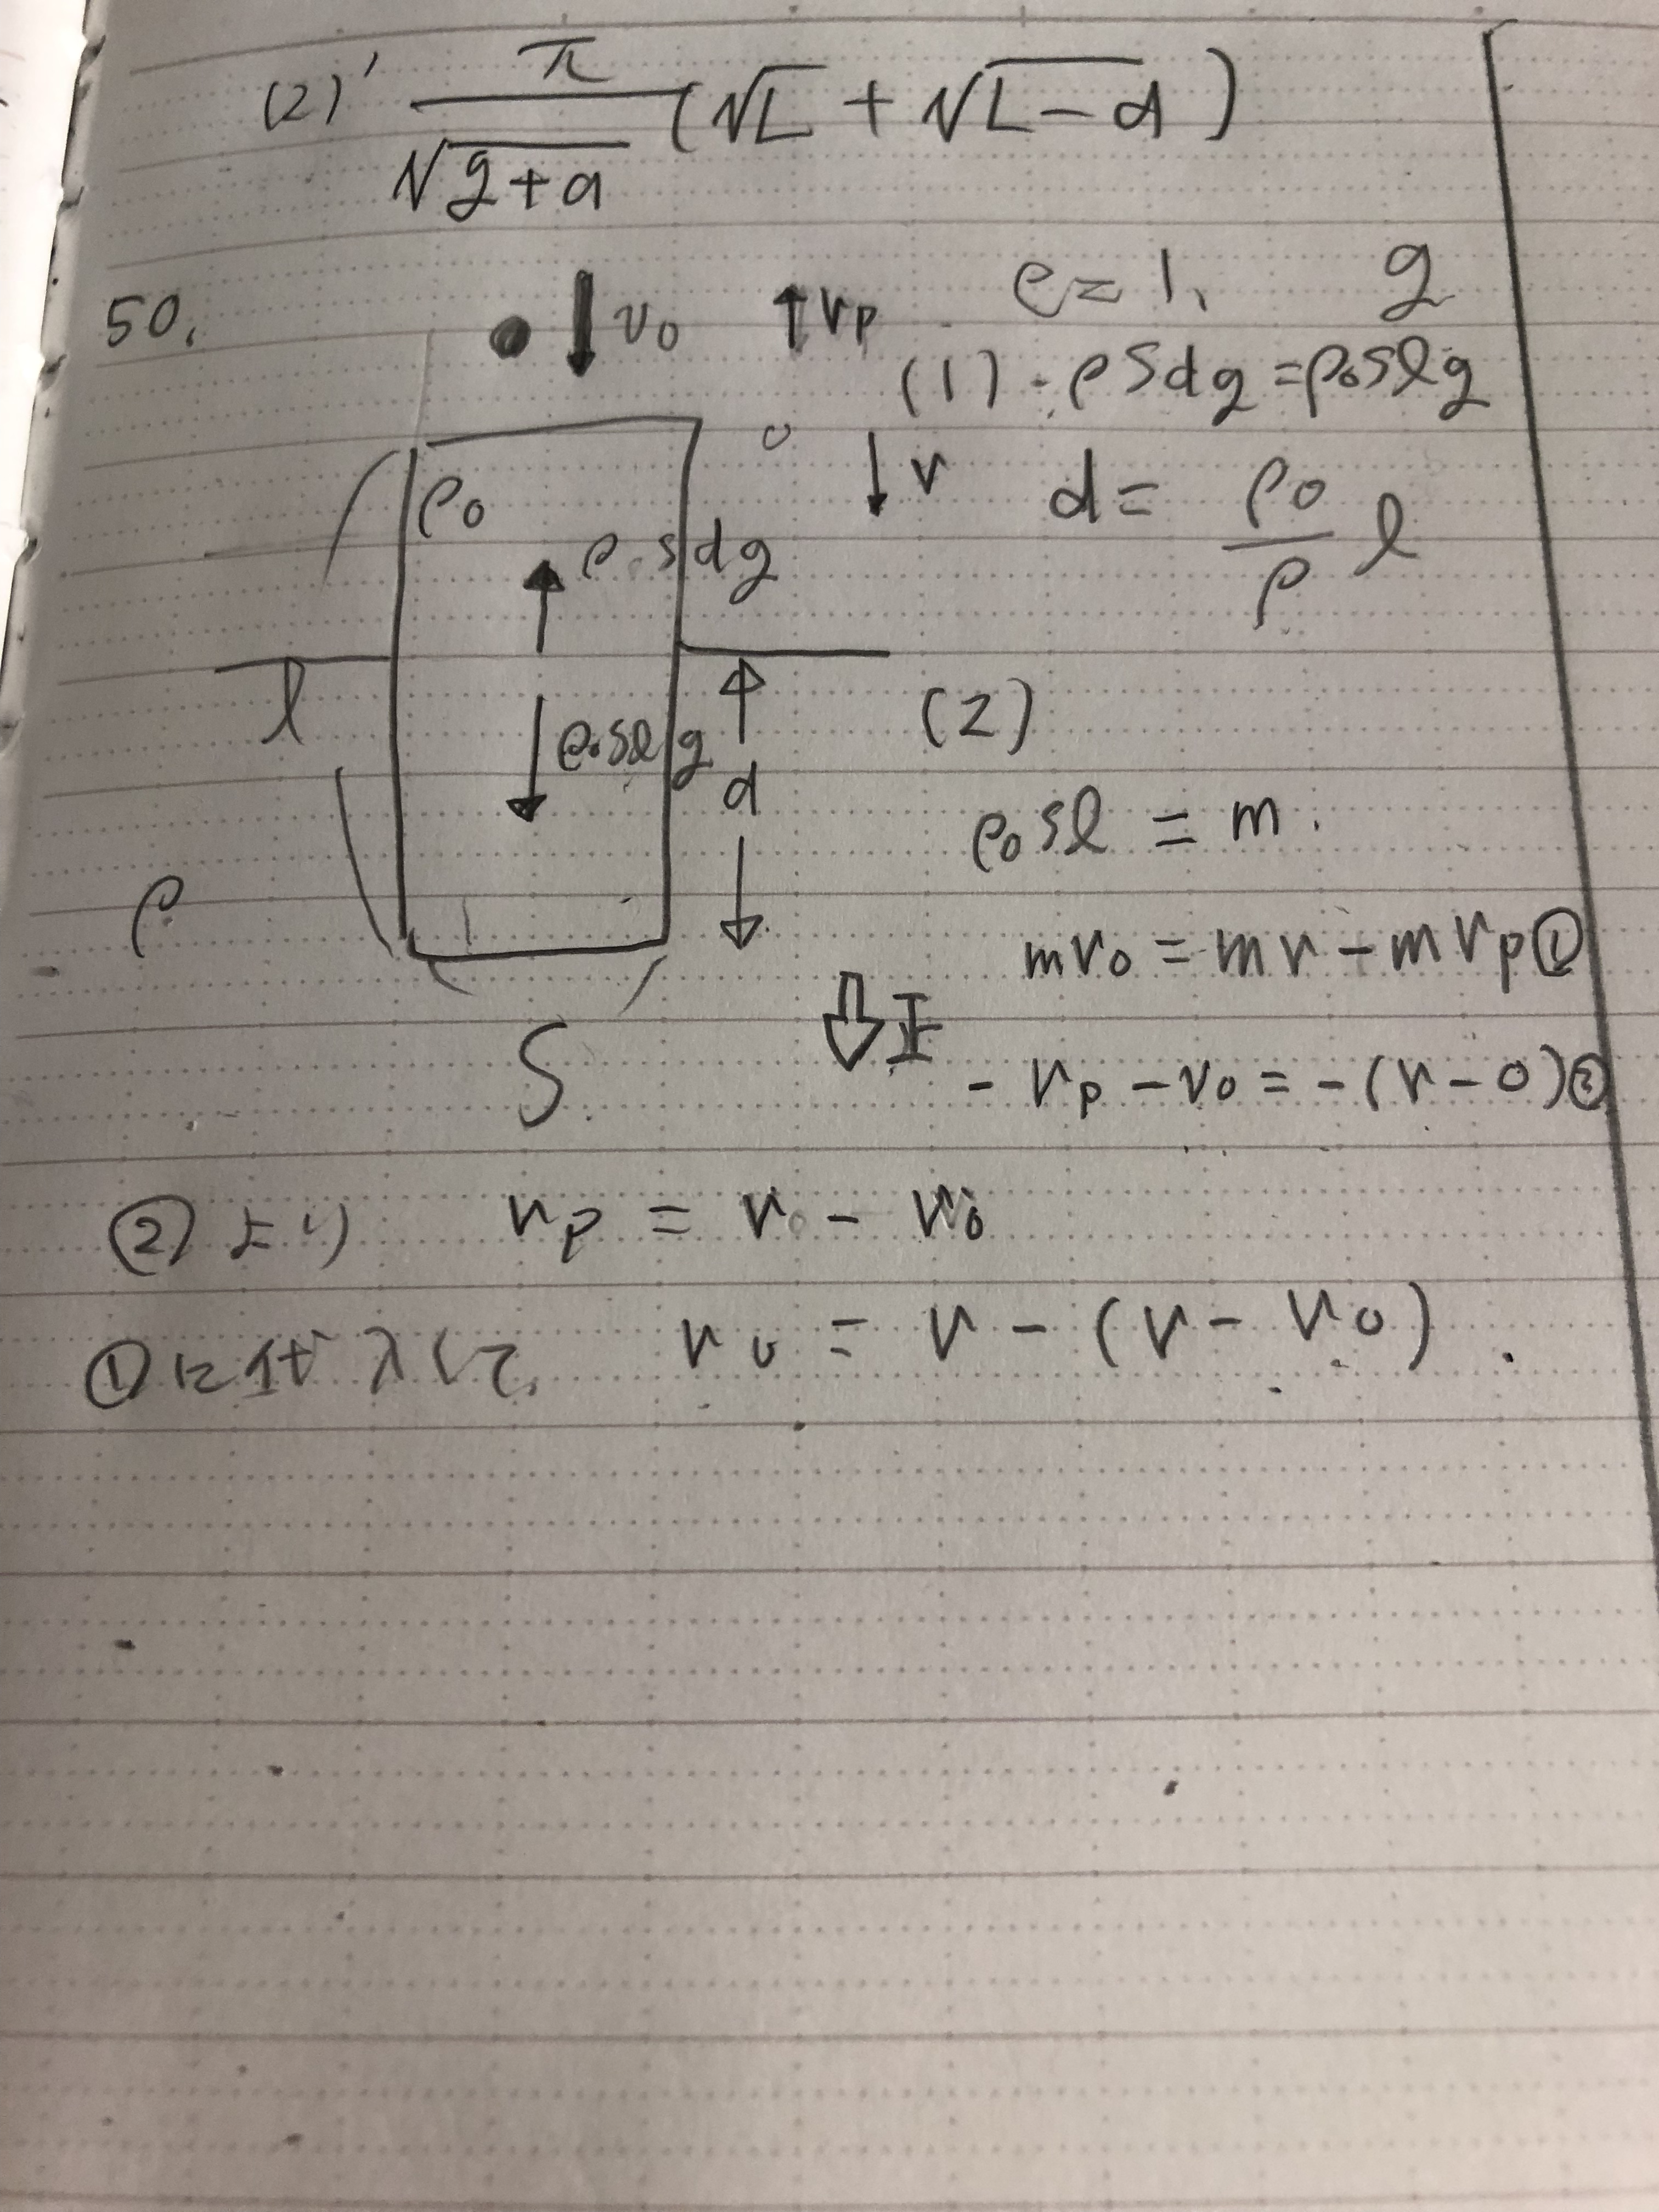 (2)' π/√(g+a) (√L + √(L-d))
50. ↓v₀ ↑vp e=1, g
(1) ρSdg = ρ₀Slg
ρ₀ ↓v d = ρ₀/ρ l
ρSdg
l ρ₀Slg d (2)
ρ₀Sl = m.
ρ mv₀ = mv - mvp ①
S ⇩正 -vp - v₀ = -(v - 0) ②
②より vp = v - v₀
①に代入して, v₀ = v - (v - v₀).